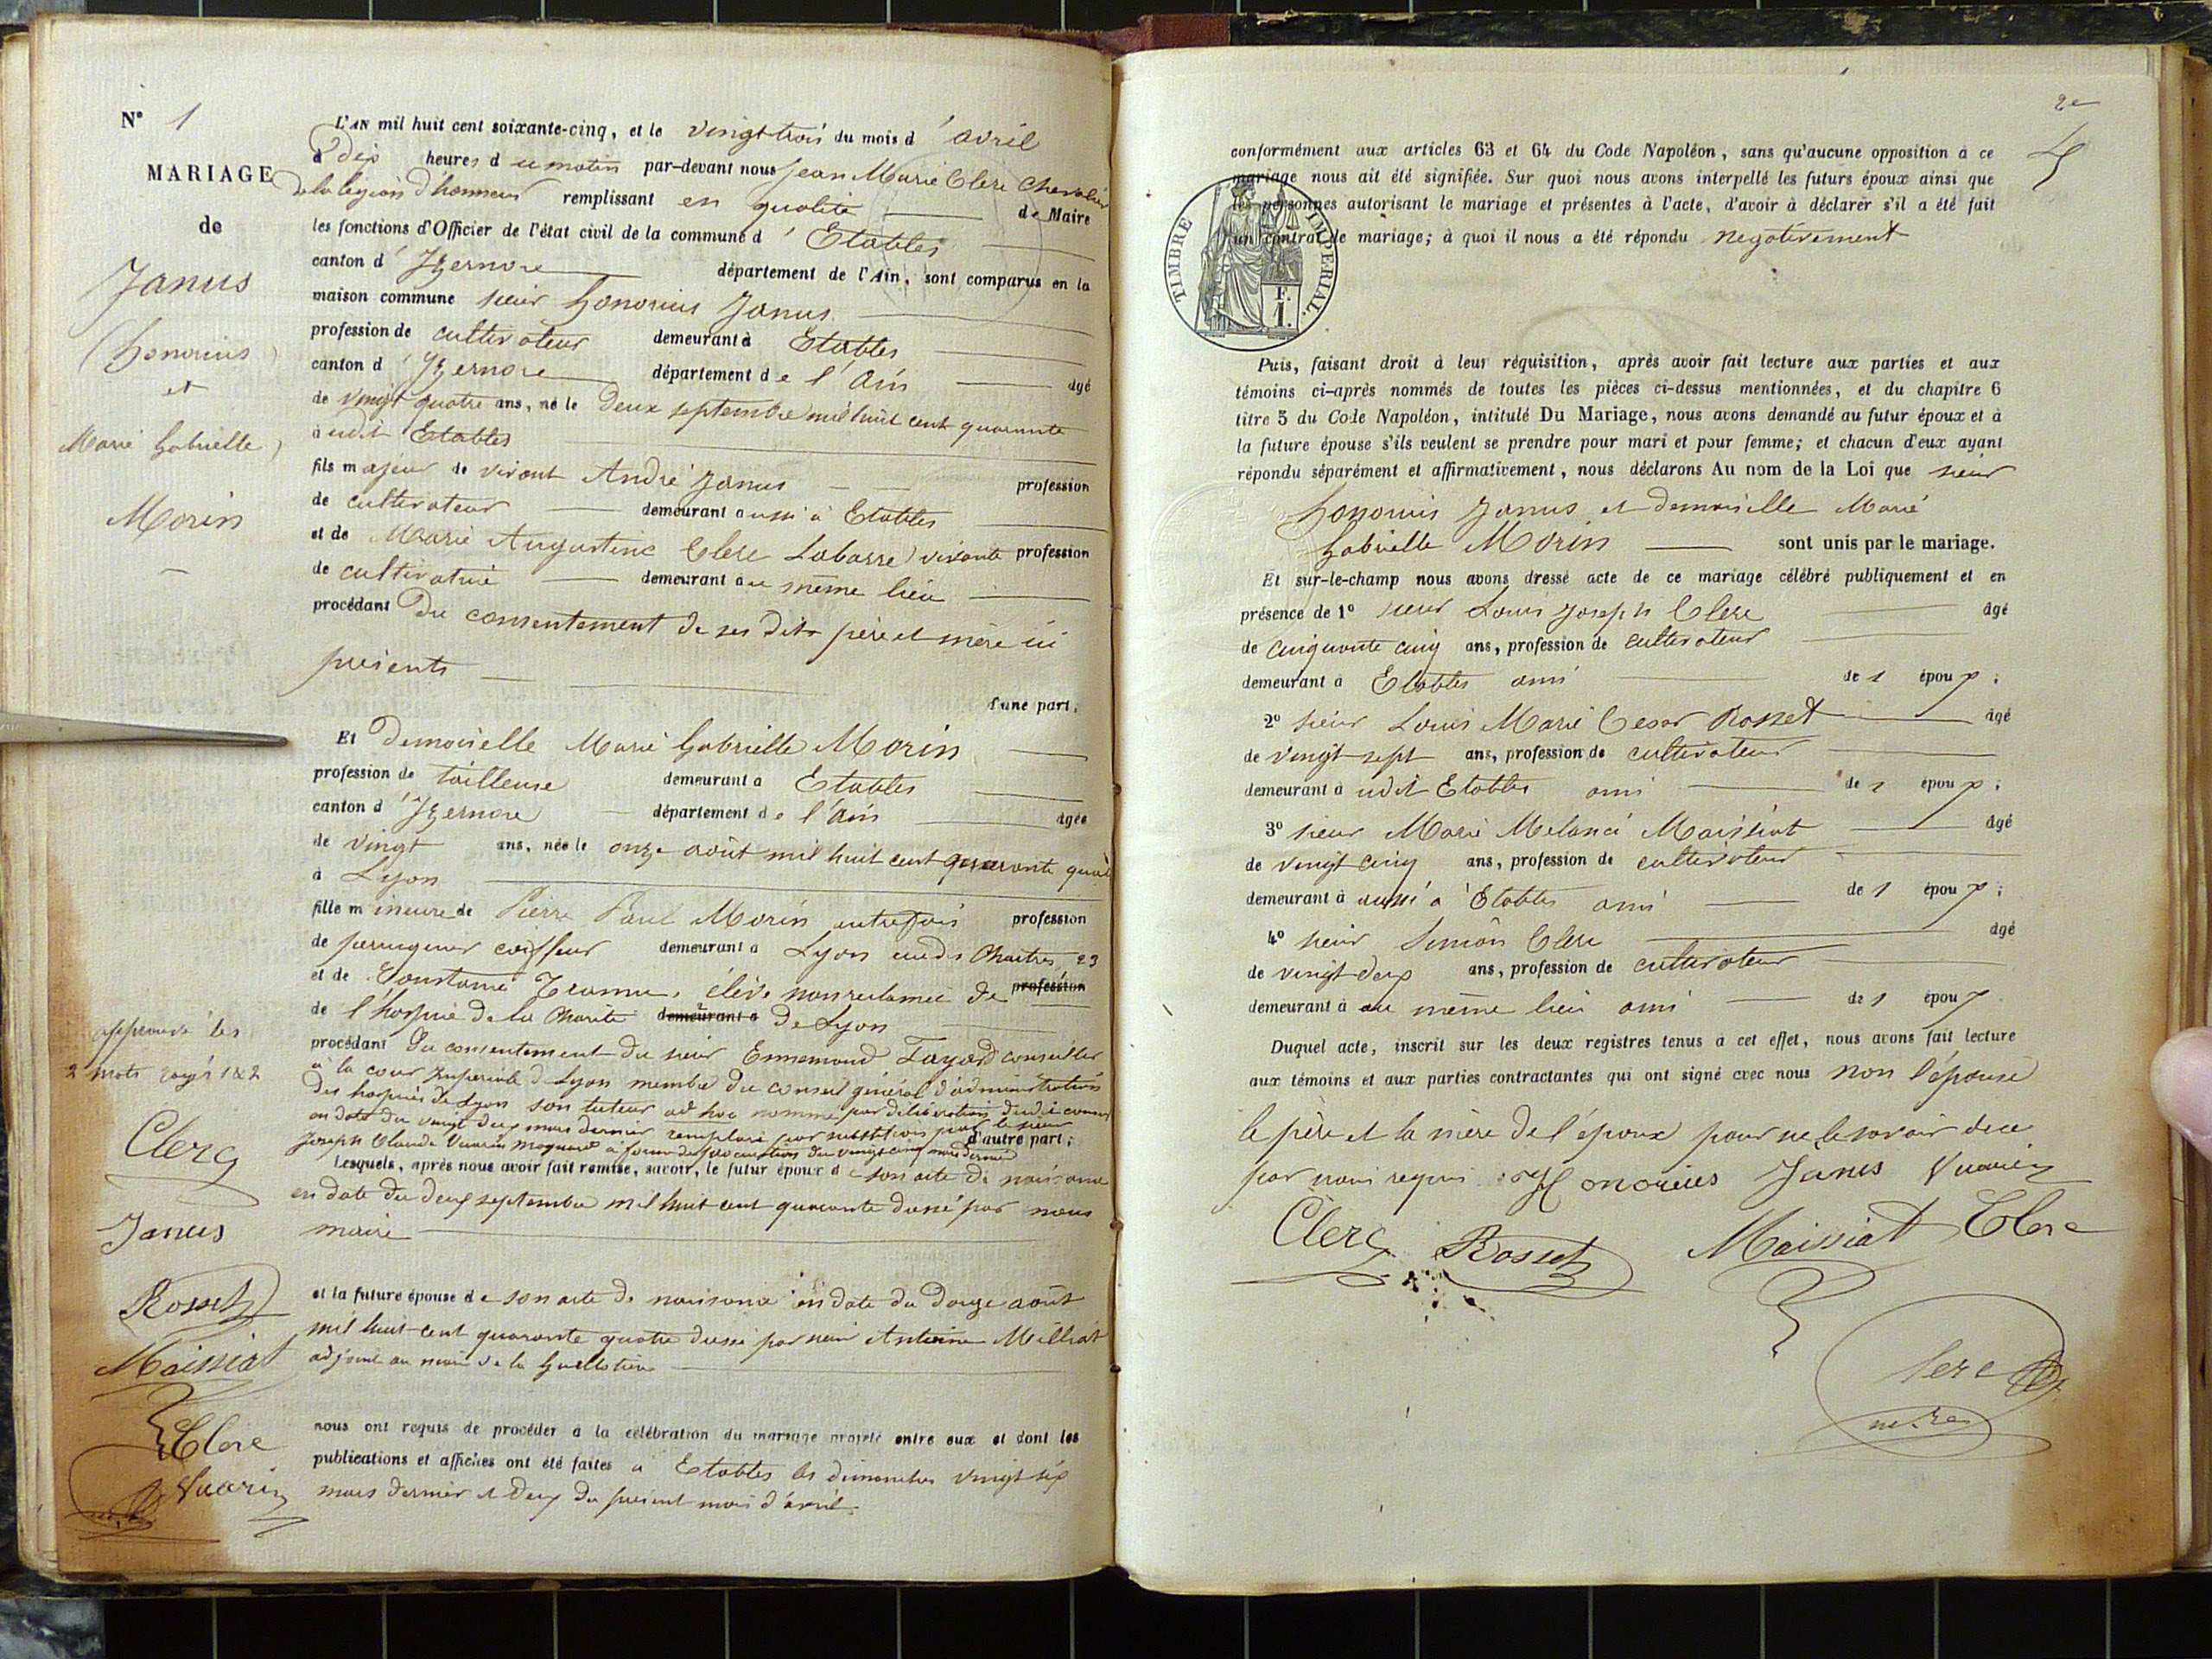 N° 1
MARIAGE
de
Janus
(honorius)
et
Marie Gabrielle)
Morin
L'AN mil huit cent soixante-cinq, et le vingt trois du mois d'avril
à dix heures du matin par-devant nous Jean Marie Clerc Chevalier
de la légion d'honneur remplissant en qualité de Maire
les fonctions d'Officier de l'état civil de la commune d'Etables
canton d'Izernore département de l'Ain, sont comparus en la
maison commune sieur honorius Janus
profession de cultivateur demeurant à Etables
canton d'Izernore département de l'Ain âgé
de vingt quatre ans, né le deux septembre mil huit cent quarante
à udit Etables
fils majeur de vivant André Janus profession
de cultivateur demeurant aussi à Etables
et de Marie Augustine Clerc Labarre vivante profession
de cultivatrice demeurant au même lieu
procédant du consentement de ses dits père et mère ici
présents
d'une part,
Et demoiselle Marie Gabrielle Morin
profession de tailleuse demeurant à Etables
canton d'Izernore département de l'Ain âgée
de vingt ans, née le onze août mil huit cent quarante quatre
à Lyon
fille mineure de Pierre Paul Morin autrefois profession
de perruquier coiffeur demeurant à Lyon rue des Chartres 23
et de élève non réclamée de profession
de l'hospice de la Charité demeurant à de Lyon
procédant du consentement du sieur Ennemond Fayard conseiller
à la cour impériale de Lyon membre du conseil général d'administration
des hospices de Lyon son tuteur ad hoc nommé par délibération dudit conseil
en date du vingt deux mars dernier remplacé par substitution par le sieur
Joseph Claude Vuarin d'autre part;
Lesquels, après nous avoir fait remise, savoir, le futur époux de son acte de naissance
en date du deux septembre mil huit cent quarante dressé par nous
maire
et la future épouse de son acte de naissance en date du douze août
mil huit cent quarante quatre dressé par nous Antoine Milliat
adjoint au maire de la Guillotière
nous ont requis de procéder à la célébration du mariage projeté entre eux et dont les
publications et affiches ont été faites à Etables les dimanches vingt six
mars dernier et deux du présent mois d'avril
approuvé les
2 mots rayés 1 & 2
Clerc
Janus
Rosset
Maissiat
Clerc
Vuarin
2e
conformément aux articles 63 et 64 du Code Napoléon, sans qu'aucune opposition à ce
mariage nous ait été signifiée. Sur quoi nous avons interpellé les futurs époux ainsi que
les personnes autorisant le mariage et présentes à l'acte, d'avoir à déclarer s'il a été fait
un contrat de mariage; à quoi il nous a été répondu négativement
TIMBRE IMPERIAL.
F.
1.
Puis, faisant droit à leur réquisition, après avoir fait lecture aux parties et aux
témoins ci-après nommés de toutes les pièces ci-dessus mentionnées, et du chapitre 6
titre 5 du Code Napoléon, intitulé Du Mariage, nous avons demandé au futur époux et à
la future épouse s'ils veulent se prendre pour mari et pour femme; et chacun d'eux ayant
répondu séparément et affirmativement, nous déclarons Au nom de la Loi que sieur
honorius Janus et demoiselle Marie
Gabrielle Morin sont unis par le mariage.
Et sur-le-champ nous avons dressé acte de ce mariage célébré publiquement et en
présence de 1° sieur Louis Joseph Clerc âgé
de cinquante cinq ans, profession de cultivateur
demeurant à Etables ami de l époux;
2° sieur Louis Marie Cesar Rosset âgé
de vingt-sept ans, profession de cultivateur
demeurant à udit Etables ami de l époux;
3° sieur Marie Melanci Maissiat âgé
de vingt cinq ans, profession de cultivateur
demeurant à aussi à Etables ami de l époux;
4° sieur Simôn Clerc âgé
de vingt deux ans, profession de cultivateur
demeurant à au même lieu ami de l époux
Duquel acte, inscrit sur les deux registres tenus à cet effet, nous avons fait lecture
aux témoins et aux parties contractantes qui ont signé avec nous non l'épouse
le père et la mère de l'époux pour ne le savoir de ce
par nous requis Honorius Janus Vuarin
Clerc Rosset Maissiat Clerc
Clerc